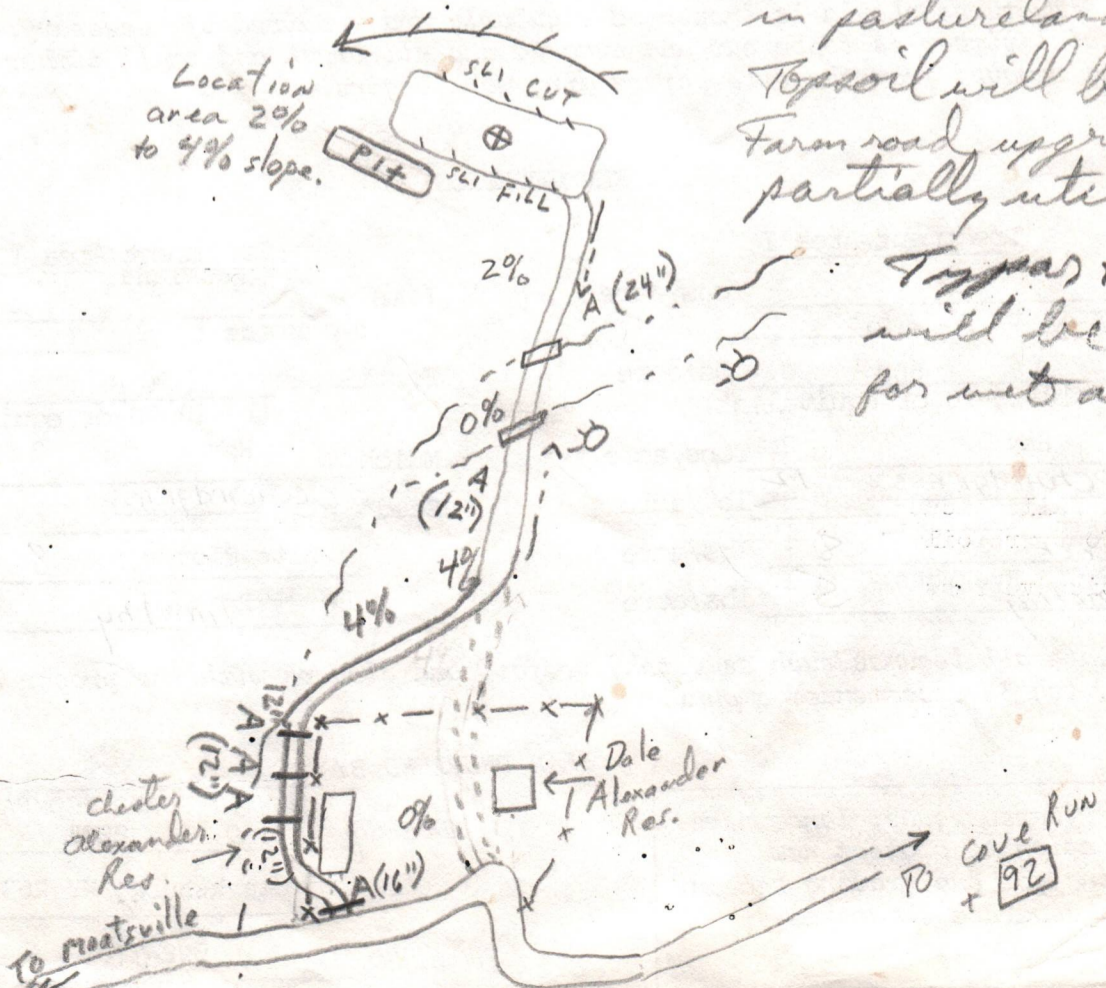 in pastureland
Topsoil will b
Farm road upgr
partially uti
Typar
will be
for wet a
Location
area 2%
to 4% slope.
SLI CUT
Pit
SLI FILL
2%
A (24")
0%
A
(12")
4%
4%
12"
A
A
(12")
A
(12")
Chester
Alexander
Res.
0%
Dale
Alexander
Res.
A(16")
To Moatsville
TO Cove Run
+ 92